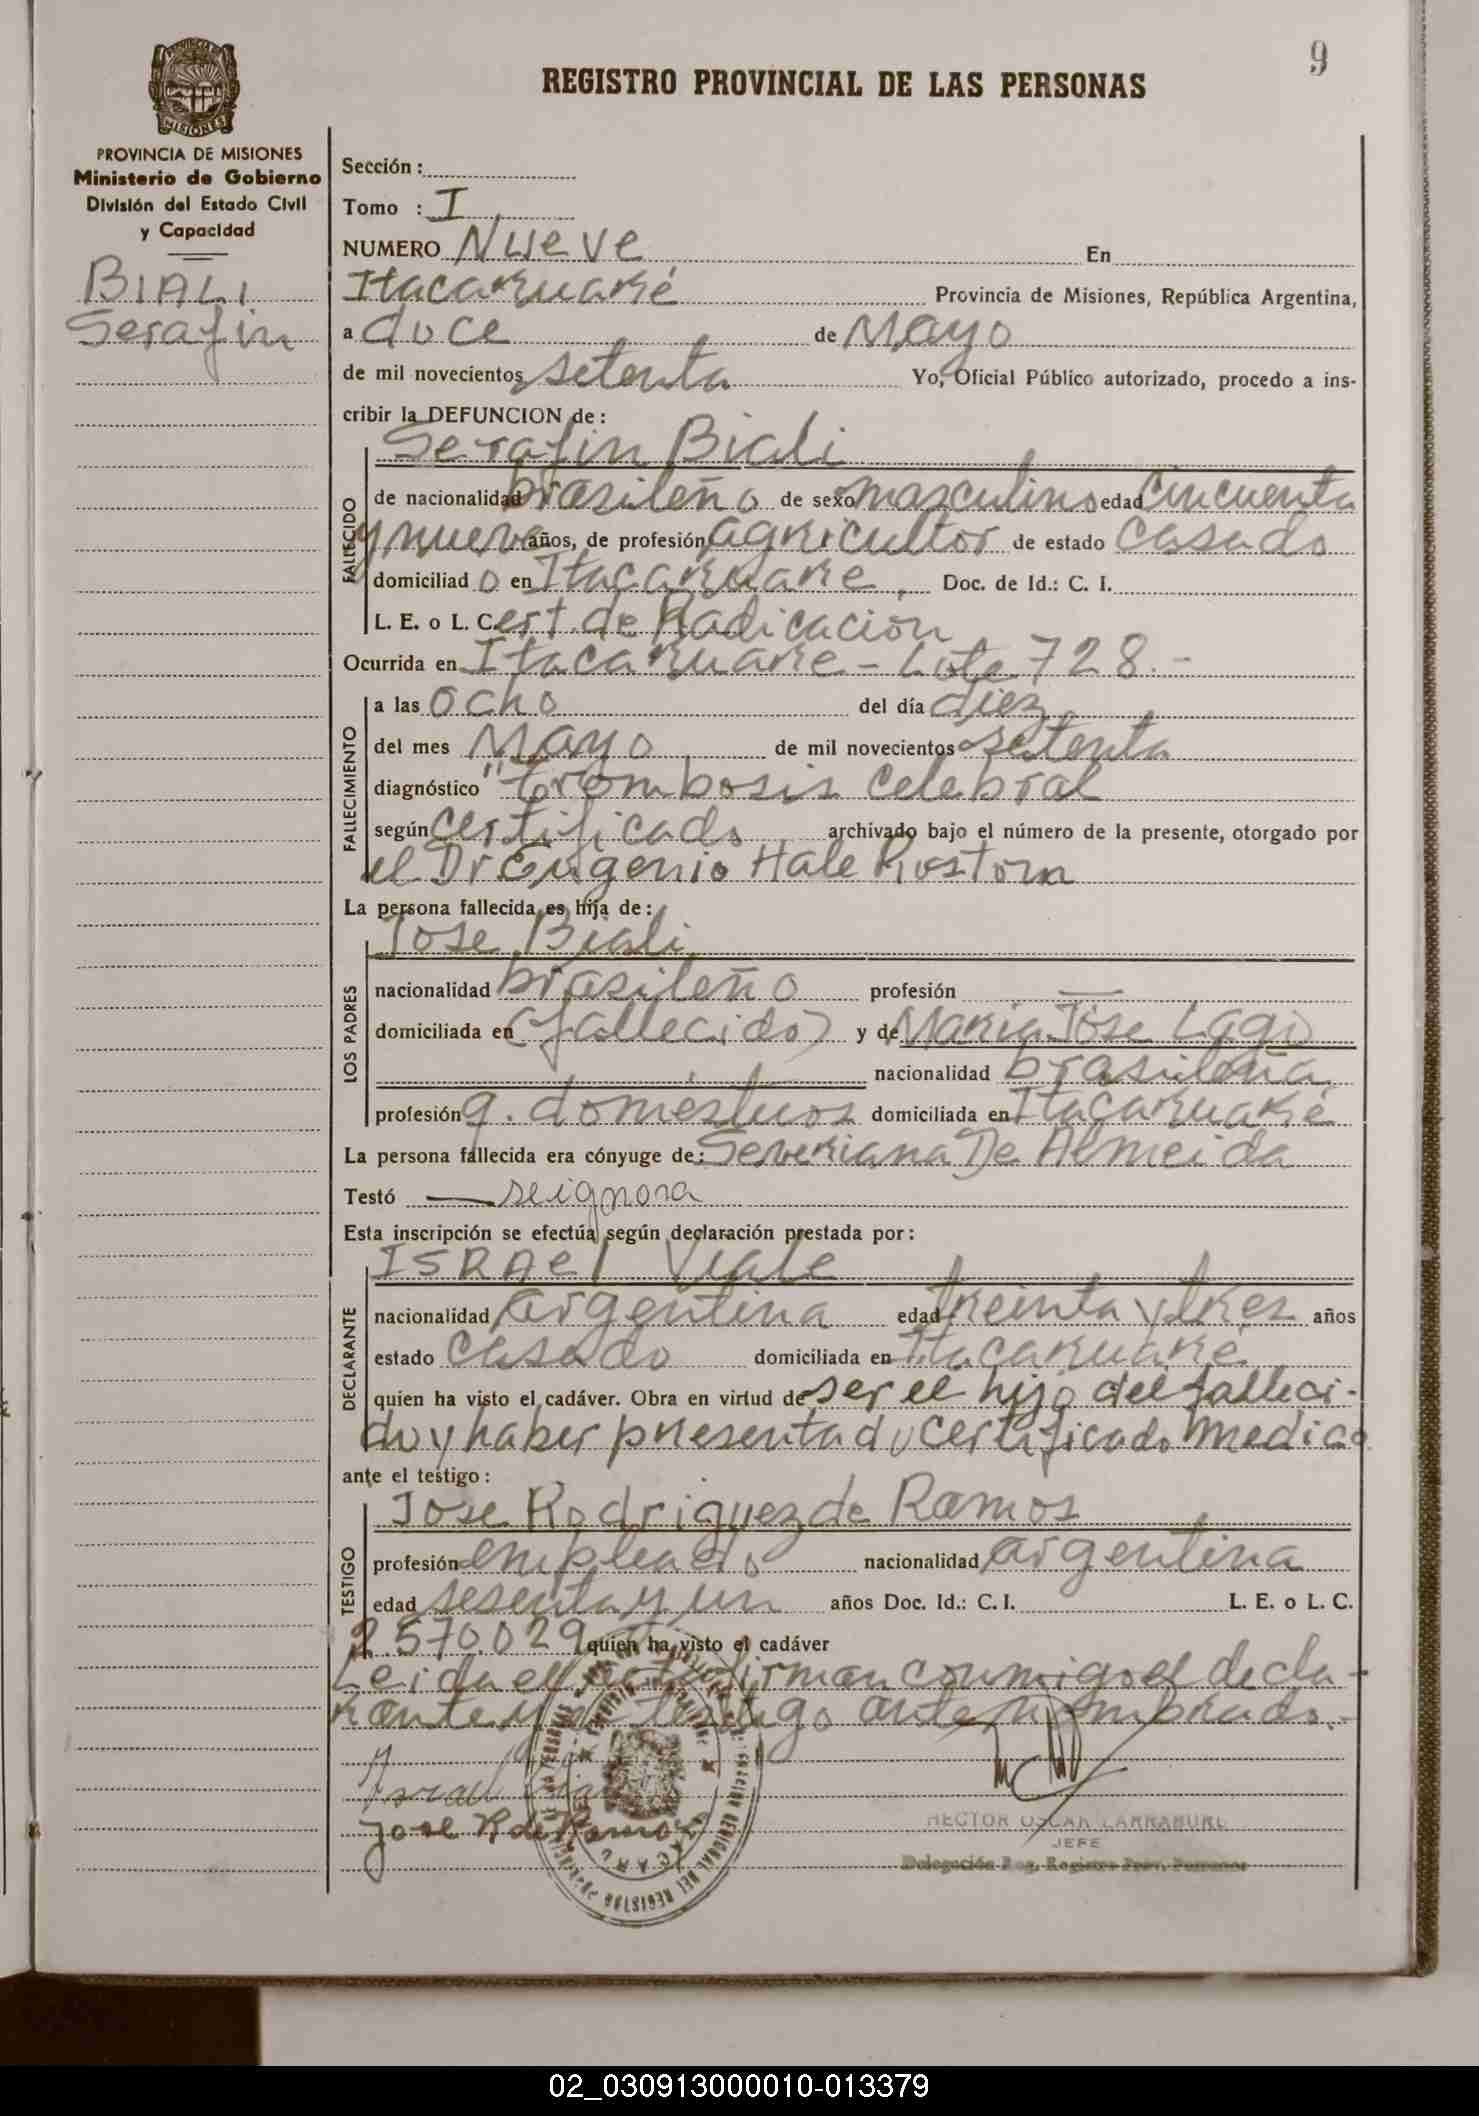 9
REGISTRO PROVINCIAL DE LAS PERSONAS
MISIONES
PROVINCIA DE MISIONES
Ministerio de Gobierno
División del Estado Civil
y Capacidad
BIALI
Serafin
Sección :
Tomo : I
NUMERO Nueve En
Itacaruaré Provincia de Misiones, República Argentina,
a doce de Mayo
de mil novecientos setenta Yo, Oficial Público autorizado, procedo a ins-
cribir la DEFUNCION de :
Serafin Biali
FALLECIDO
de nacionalidad brasileño de sexo masculino edad cincuenta
y nueve años, de profesión agricultor de estado casado
domiciliad o en Itacaruare, Doc. de Id.: C. I.
L. E. o L. C. Cert. de Radicación
Ocurrida en Itacaruare - Lote 728.-
FALLECIMIENTO
a las ocho del día diez
del mes Mayo de mil novecientos setenta
diagnóstico "trombosis celebral
según certificado archivado bajo el número de la presente, otorgado por
el Dr Eugenio Hale Rostom
La persona fallecida es hija de :
LOS PADRES
Jose Biali
nacionalidad brasileño profesión —
domiciliada en (fallecido) y de Maria Jose Lago
nacionalidad brasileña
profesión q. domésticos domiciliada en Itacaruaré
La persona fallecida era cónyuge de: Severiana De Almeida
Testó — se ignora
Esta inscripción se efectúa según declaración prestada por :
DECLARANTE
ISRAEl Viale
nacionalidad argentina edad treinta y tres años
estado casado domiciliada en Itacaruaré
quien ha visto el cadáver. Obra en virtud de ser el hijo del falleci-
do y haber presentado certificado medico
ante el testigo :
TESTIGO
Jose Rodriguez de Ramos
profesión empleado nacionalidad argentina
edad sesenta y un años Doc. Id.: C. I. L. E. o L. C.
2.570.029 quien ha visto el cadáver
Leida el firman conmigo el decla-
rante y testigo antes nombrado.-
Israel
Jose R de Ramos
HECTOR OSCAR LARRABURE
JEFE
Delegación Reg. Registro Prov. Personas
02_030913000010-013379